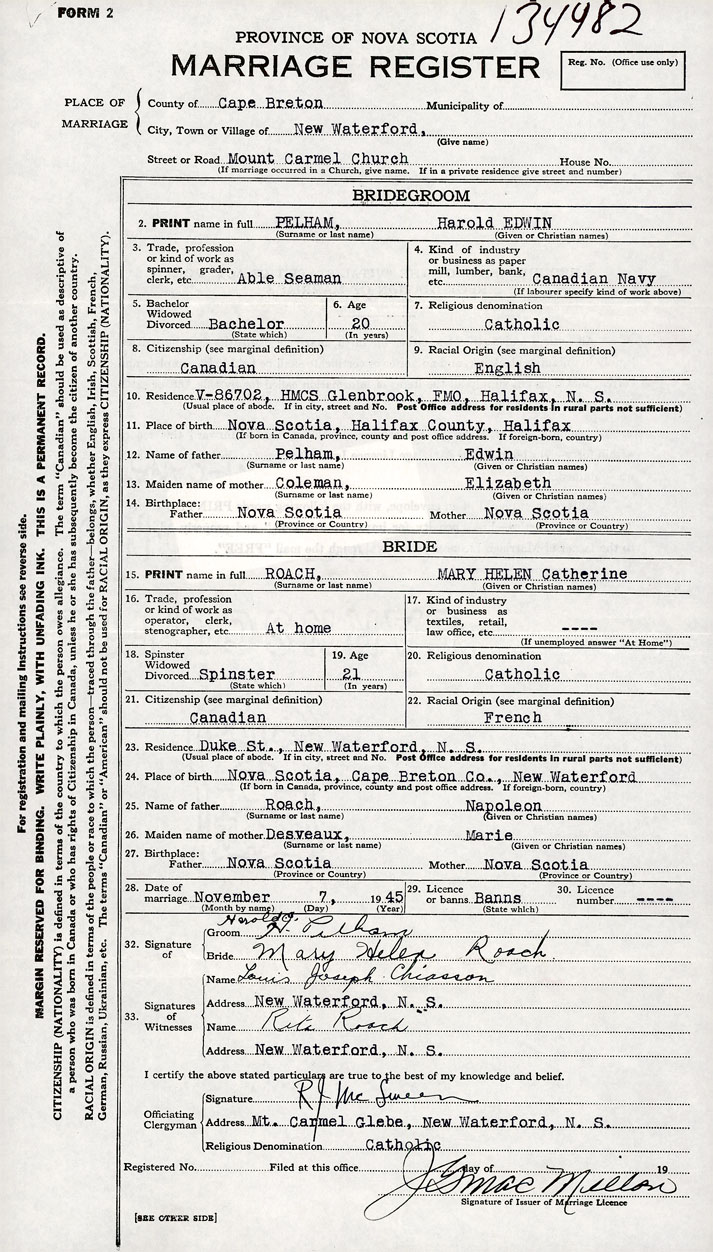 FORM 2
134982
PROVINCE OF NOVA SCOTIA
MARRIAGE REGISTER
Reg. No. (Office use only)
PLACE OF MARRIAGE
County of Cape Breton Municipality of
City, Town or Village of New Waterford,
(Give name)
Street or Road Mount Carmel Church House No.
(If marriage occurred in a Church, give name. If in a private residence give street and number)
BRIDEGROOM
2. PRINT name in full PELHAM, Harold EDWIN
(Surname or last name) (Given or Christian names)
3. Trade, profession or kind of work as spinner, grader, clerk, etc. Able Seaman
4. Kind of industry or business as paper mill, lumber, bank, etc. Canadian Navy
(If labourer specify kind of work above)
5. Bachelor Widowed Divorced Bachelor
(State which)
6. Age 20
(In years)
7. Religious denomination
Catholic
8. Citizenship (see marginal definition)
Canadian
9. Racial Origin (see marginal definition)
English
10. Residence V-86702, HMCS Glenbrook, FMO, Halifax, N. S.
(Usual place of abode. If in city, street and No. Post Office address for residents in rural parts not sufficient)
11. Place of birth Nova Scotia, Halifax County, Halifax
(If born in Canada, province, county and post office address. If foreign-born, country)
12. Name of father Pelham, Edwin
(Surname or last name) (Given or Christian names)
13. Maiden name of mother Coleman, Elizabeth
(Surname or last name) (Given or Christian names)
14. Birthplace:
Father Nova Scotia Mother Nova Scotia
(Province or Country) (Province or Country)
BRIDE
15. PRINT name in full ROACH, MARY HELEN Catherine
(Surname or last name) (Given or Christian names)
16. Trade, profession or kind of work as operator, clerk, stenographer, etc. At home
17. Kind of industry or business as textiles, retail, law office, etc. ----
(If unemployed answer "At Home")
18. Spinster Widowed Divorced Spinster
(State which)
19. Age 21
(In years)
20. Religious denomination
Catholic
21. Citizenship (see marginal definition)
Canadian
22. Racial Origin (see marginal definition)
French
23. Residence Duke St., New Waterford, N. S.
(Usual place of abode. If in city, street and No. Post Office address for residents in rural parts not sufficient)
24. Place of birth Nova Scotia, Cape Breton Co., New Waterford
(If born in Canada, province, county and post office address. If foreign-born, country)
25. Name of father Roach, Napoleon
(Surname or last name) (Given or Christian names)
26. Maiden name of mother Desveaux, Marie
(Surname or last name) (Given or Christian names)
27. Birthplace:
Father Nova Scotia Mother Nova Scotia
(Province or Country) (Province or Country)
28. Date of marriage November 7, 1945
(Month by name) (Day) (Year)
29. Licence or banns Banns
(State which)
30. Licence number ----
32. Signature of
Groom H. Pelham
Bride Mary Helen Roach
33. Signatures of Witnesses
Name Louis Joseph Chiasson
Address New Waterford, N. S.
Name Rita Roach
Address New Waterford, N. S.
I certify the above stated particulars are true to the best of my knowledge and belief.
Officiating Clergyman
Signature
Address Mt. Carmel Glebe, New Waterford, N. S.
Religious Denomination Catholic
Registered No. Filed at this office day of 19
Signature of Issuer of Marriage Licence
[SEE OTHER SIDE]
For registration and mailing instructions see reverse side.
MARGIN RESERVED FOR BINDING. WRITE PLAINLY, WITH UNFADING INK. THIS IS A PERMANENT RECORD.
CITIZENSHIP (NATIONALITY) is defined in terms of the country to which the person owes allegiance. The term "Canadian" should be used as descriptive of
a person who was born in Canada or who has rights of Citizenship in Canada, unless he or she has subsequently become the citizen of another country.
RACIAL ORIGIN is defined in terms of the people or race to which the person—traced through the father—belongs, whether English, Irish, Scottish, French,
German, Russian, Ukrainian, etc. The terms "Canadian" or "American" should not be used for RACIAL ORIGIN, as they express CITIZENSHIP (NATIONALITY).